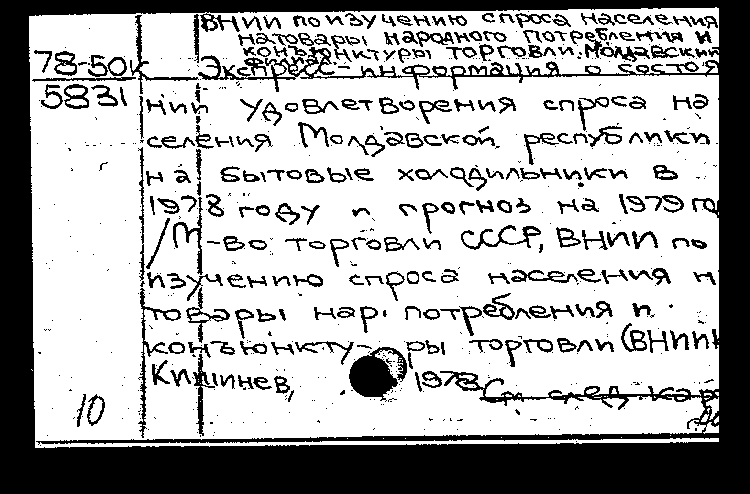 ВНИИ по изучению спроса населения
на товары народного потребления и
конъюнктуры торговли. Молдавский
филиал
78-50к Экспресс-информация о состоя
5831 нии удовлетворения спроса на
селения Молдавской республики
на бытовые холодильники в
1978 году и прогноз на 1979 год
/М-во торговли СССР, ВНИИ по
изучению спроса населения н
товары нар. потребления и
конъюнкту- ры торговли (ВНИИК
Кишинев, 1978
См. след. кар
10